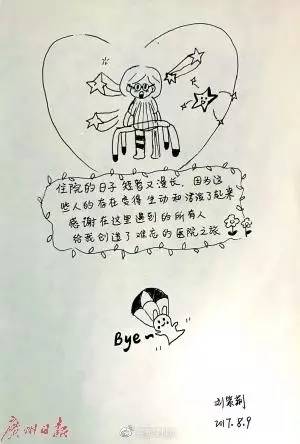 住院的日子短暂又漫长，因为这
些人的存在变得生动和活泼了起来
感谢在这里遇到的所有人
给我创造了难忘的医院之旅
Bye~
刘
2017.8.9
廣州日报